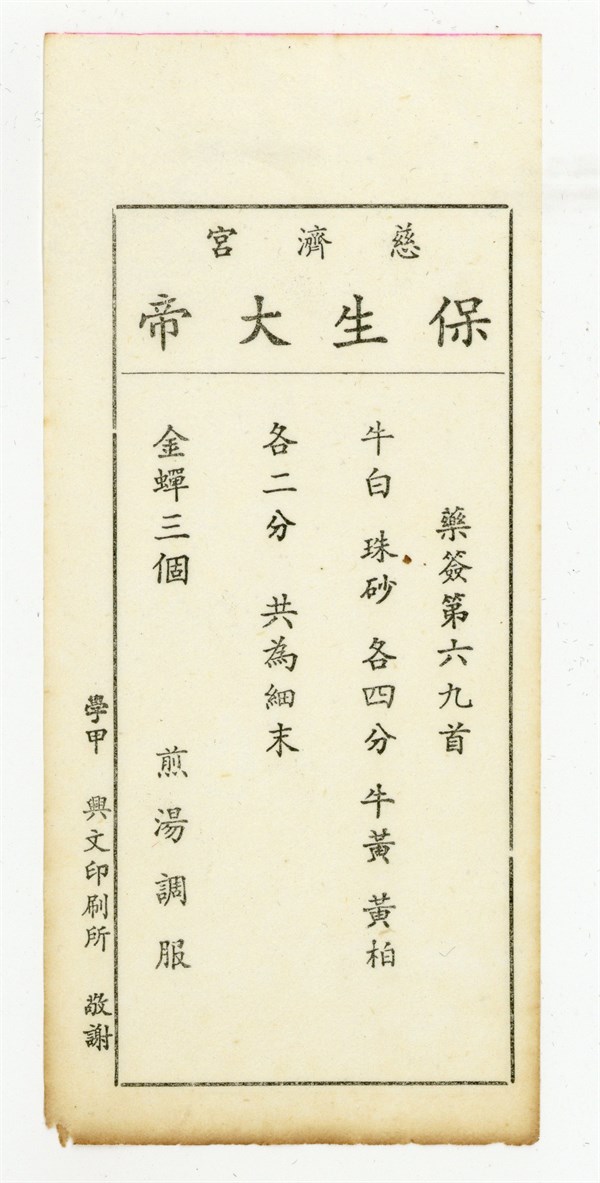 慈濟宮
保生大帝
藥簽第六九首
牛白 珠砂 各四分 牛黃 黃柏
各二分 共為細末
金蟬三個 煎湯調服
學甲 興文印刷所 敬謝